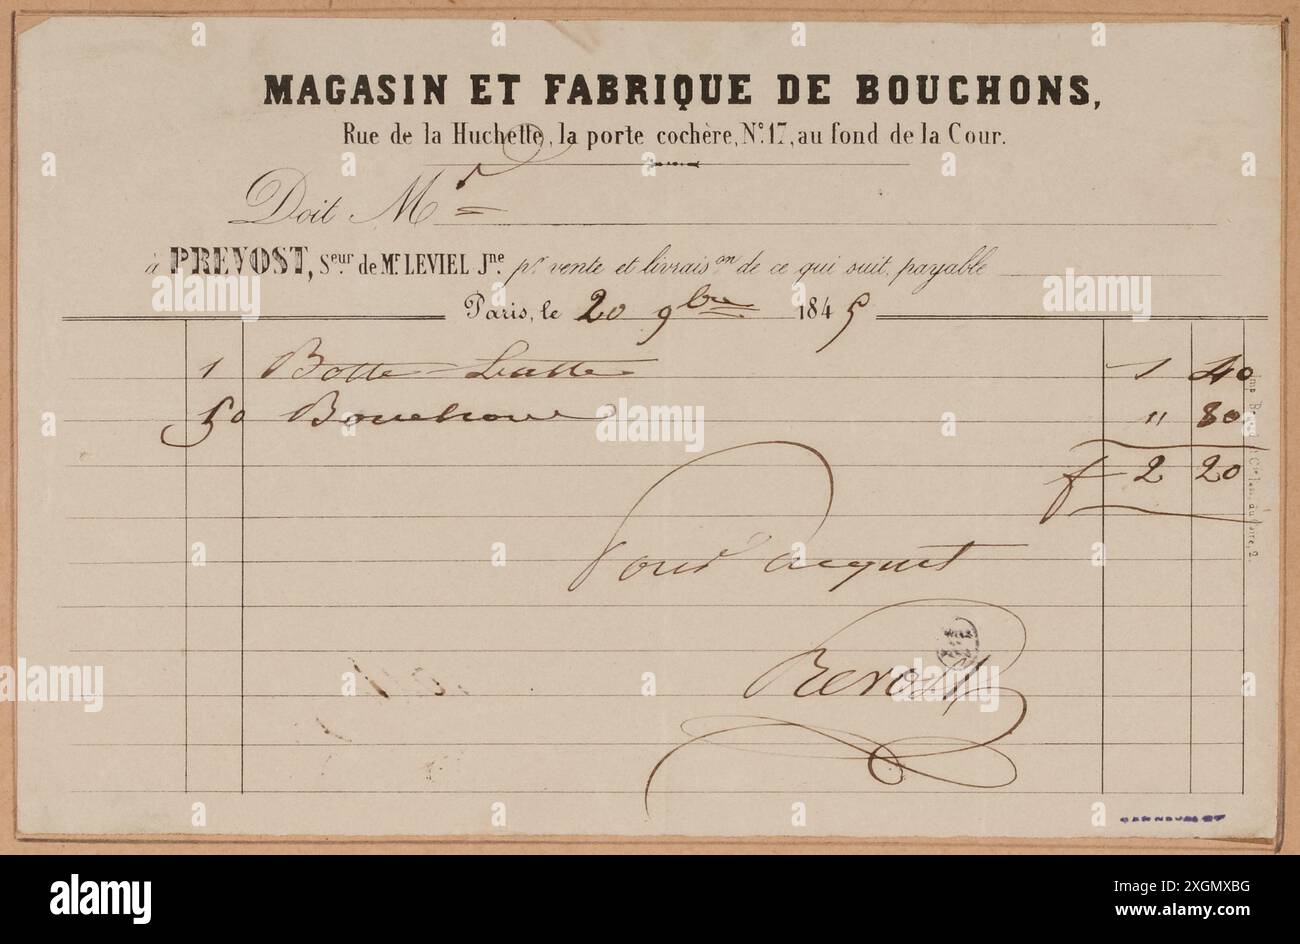 MAGASIN ET FABRIQUE DE BOUCHONS,
Rue de la Huchette, la porte cochère, N.° 17, au fond de la Cour.
Doit Mr
à PREVOST, Seur de Mr LEVIEL Jne. pr vente et livraison de ce qui suit, payable
Paris, le 20 9bre 1845
1 Botte 1 40
50 Bouchons " 80
f 2 20
Pour acquit
Prevost
CARNAVALET
alamy
Image ID: 2XGMXBG
www.alamy.com